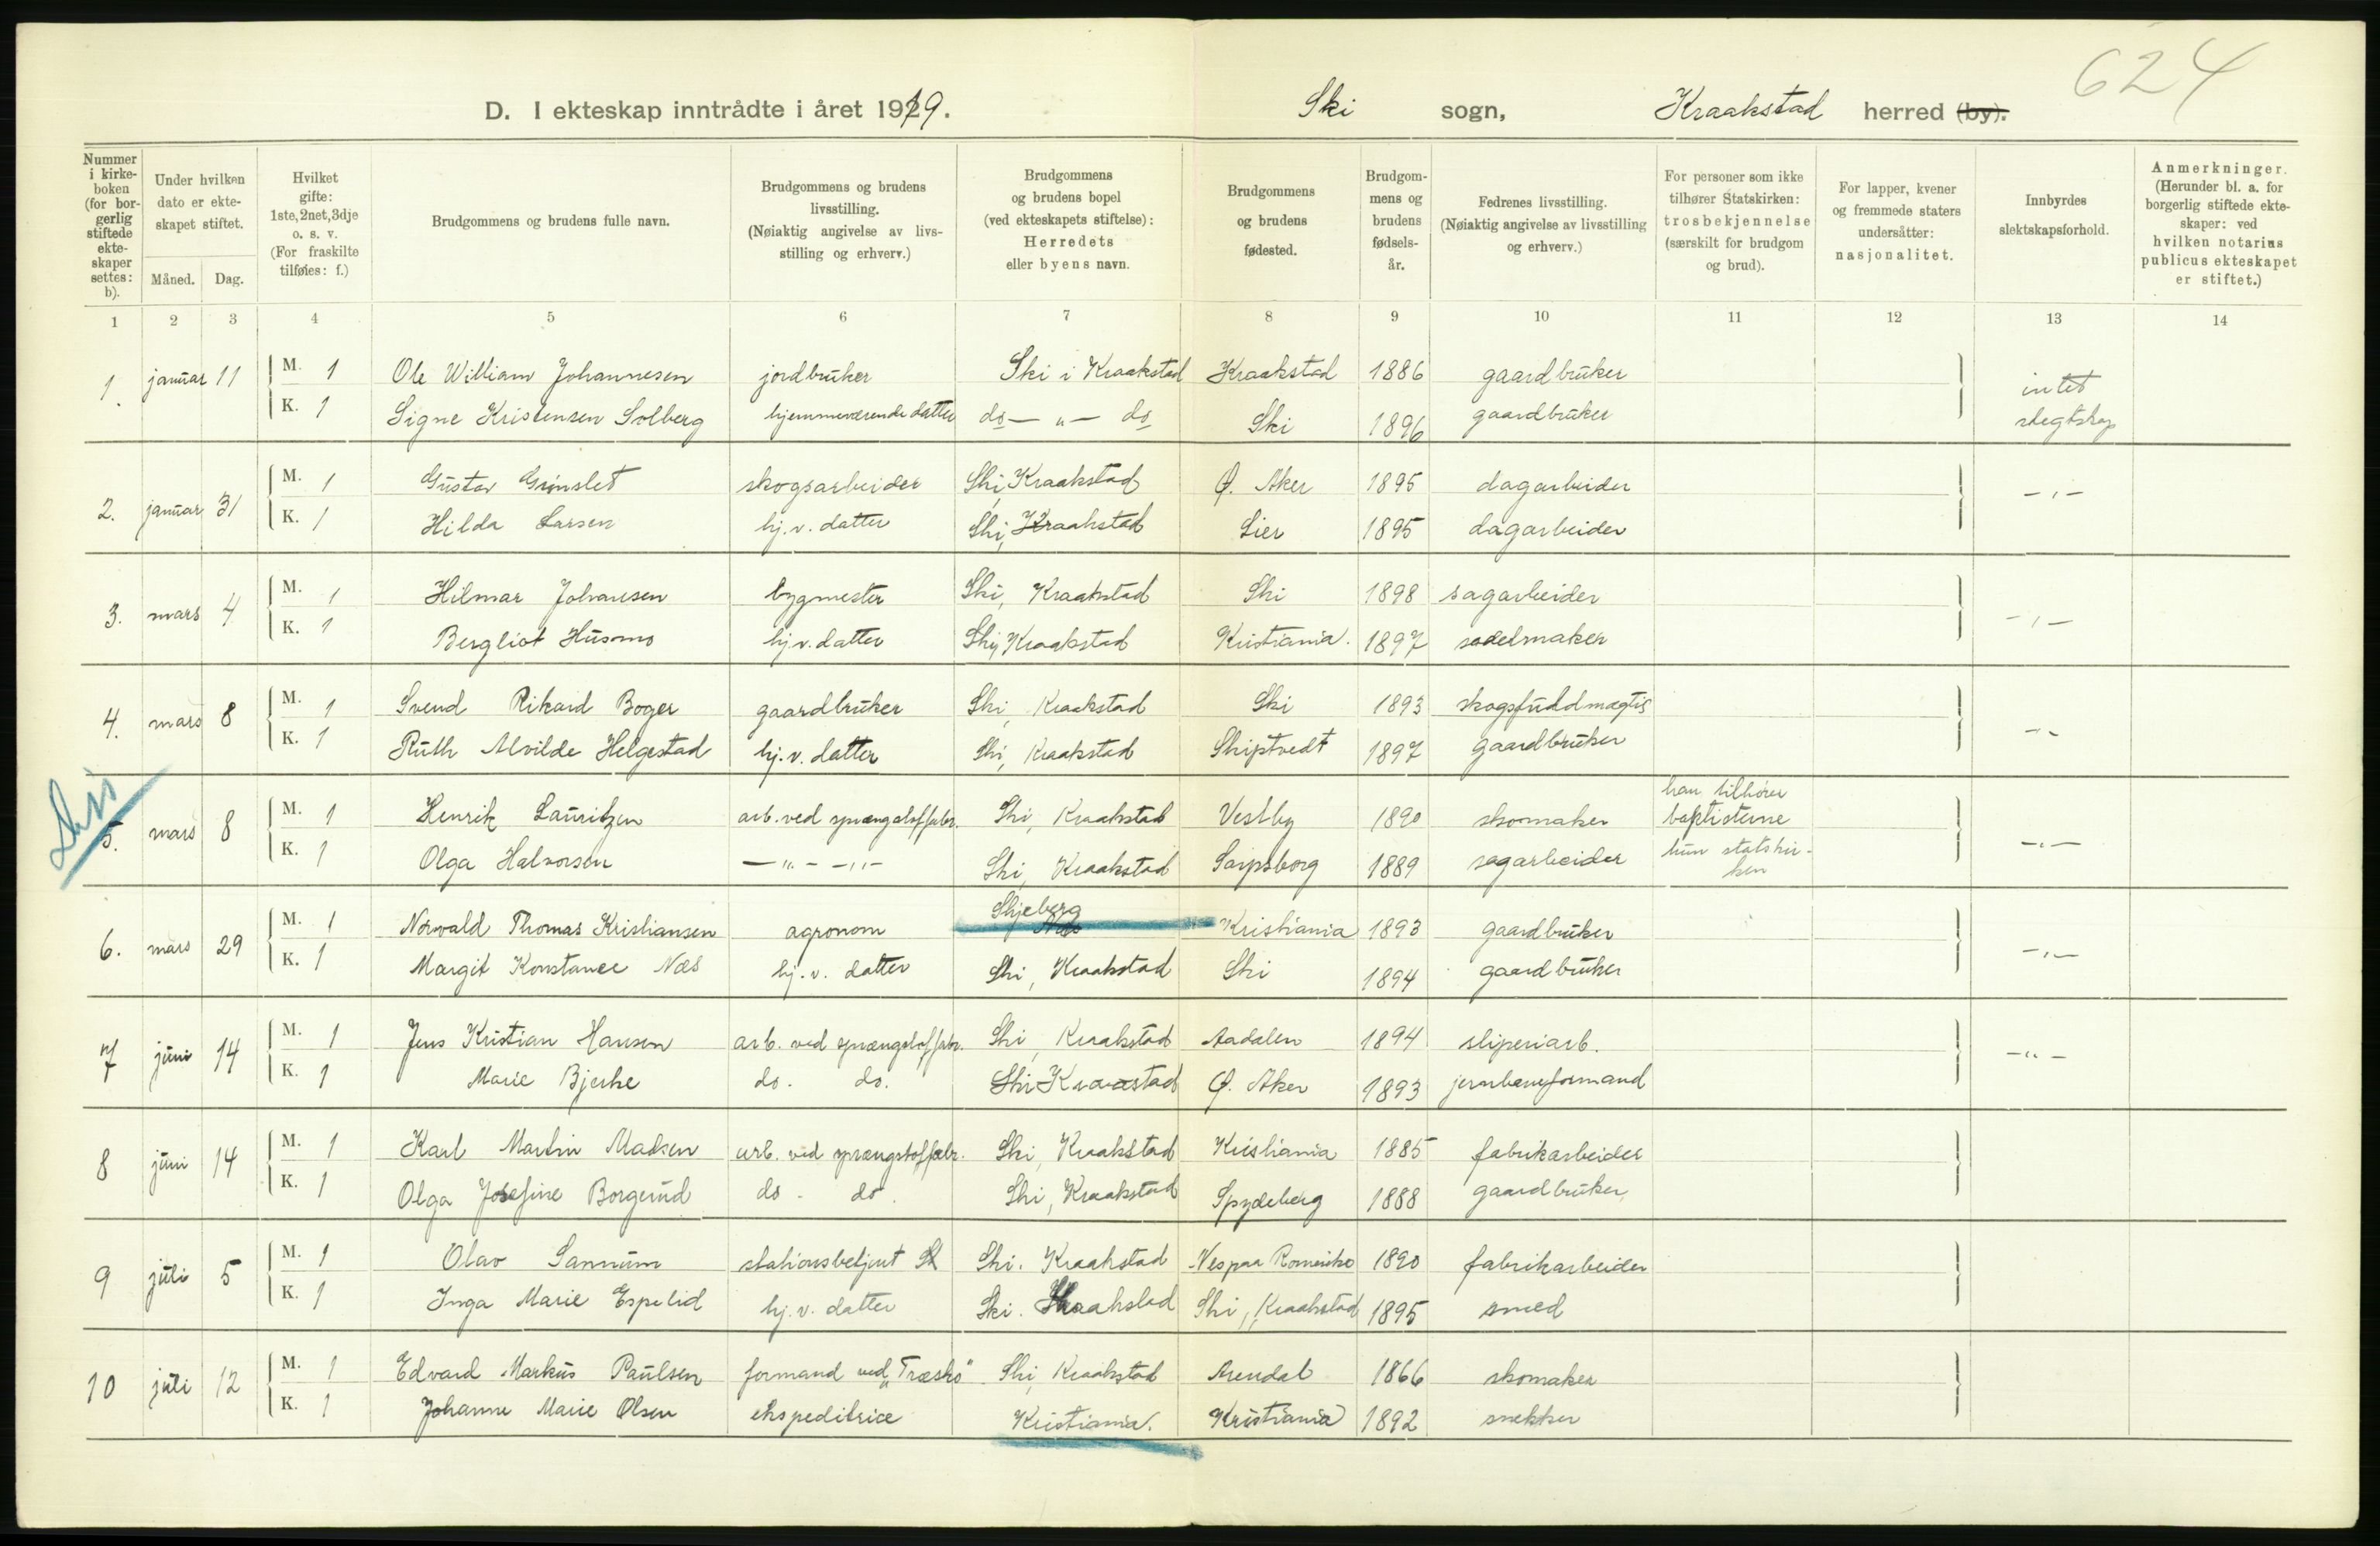 624
D. I ekteskap inntrådte i året 1919. Ski sogn, Kraakstad herred (by).
Nummer i kirke-boken (for bor-gerlig stiftede ekte-skaper settes: b).
Under hvilken dato er ekte-skapet stiftet.
Måned. Dag.
Hvilket gifte: 1ste, 2net, 3dje o. s. v. (For fraskilte tilføies: f.)
Brudgommens og brudens fulle navn.
Brudgommens og brudens livsstilling. (Nøiaktig angivelse av livs-stilling og erhverv.)
Brudgommens og brudens bopel (ved ekteskapets stiftelse): Herredets eller byens navn.
Brudgommens og brudens fødested.
Brudgom-mens og brudens fødsels-år.
Fedrenes livsstilling. (Nøiaktig angivelse av livsstilling og erhverv.)
For personer som ikke tilhører Statskirken: trosbekjennelse (særskilt for brudgom og brud).
For lapper, kvener og fremmede staters undersåtter: nasjonalitet.
Innbyrdes slektskapsforhold.
Anmerkninger. (Herunder bl. a. for borgerlig stiftede ekte-skaper: ved hvilken notarius publicus ekteskapet er stiftet.)
1 2 3 4 5 6 7 8 9 10 11 12 13 14
1. januar 11 M. 1 Ole William Johannesen jordbruker Ski i Kraakstad Kraakstad 1886 gaardbruker intet
K. 1 Signe Kristensen Solberg hjemmeværende datter do — „ — do Ski 1896 gaardbruker slegtskap
2. januar 31 M. 1 Gustav Grinslet skogsarbeider Ski Kraakstad Ø. Aker 1895 dagarbeider — „ —
K. 1 Hilda Larsen hj. v. datter Ski, Kraakstad Lier 1895 dagarbeider
3. mars 4 M. 1 Hilmar Johansen bygmester Ski, Kraakstad Ski 1898 sagarbeider — „ —
K. 1 Bergliot Husmo hj. v. datter Ski, Kraakstad Kristiania. 1897 sadelmaker
4. mars 8 M. 1 Svend Rikard Boger gaardbruker Ski, Kraakstad Ski 1893 skogsfuldmægtig — „ —
K. 1 Ruth Alvilde Helgestad hj. v. datter Ski, Kraakstad Skiptvedt 1897 gaardbruker
Ski
5. mars 8 M. 1 Henrik Lauritzen arb. ved sprængstoffabr. Ski, Kraakstad Vestby 1890 skomaker han tilhører baptisterne — „ —
K. 1 Olga Halvorsen — „ — — „ — Ski, Kraakstad Sarpsborg 1889 sagarbeider hun statskir-ken
6. mars 29 M. 1 Norvald Thomas Kristiansen agronom Skjeberg Kristiania 1893 gaardbruker — „ —
K. 1 Margit Konstance Næs hj. v. datter Ski, Kraakstad Ski 1894 gaardbruker
7 juni 14 M. 1 Jens Kristian Hansen arb. ved sprængstoffabr. Ski, Kraakstad Aadalen 1894 sliperiarb. — „ —
K. 1 Marie Bjerke do. do. Ski Kraastad Ø. Aker 1893 jernbaneformand
8 juni 14 M. 1 Karl Martin Madsen arb. ved sprængstoffabr. Ski, Kraakstad Kristiania 1885 fabrikarbeider
K. 1 Olga Josefine Borgerud do - do. Ski, Kraakstad Spydeberg 1888 gaardbruker
9 juli 5 M. 1 Olav Sannum stationsbetjent Ski. Kraakstad Nes paa Romerike 1890 fabrikarbeider
K. 1 Inga Marie Espelid hj. v. datter Ski. Kraakstad Ski, Kraakstad 1895 smed
10 juli 12 M. 1 Edvard Markus Paulsen formand ved „Træsko" Ski, Kraakstad Arendal 1866 skomaker
K. 1 Johanne Marie Olsen ekspeditrice Kristiania. Kristiania 1892 snekker